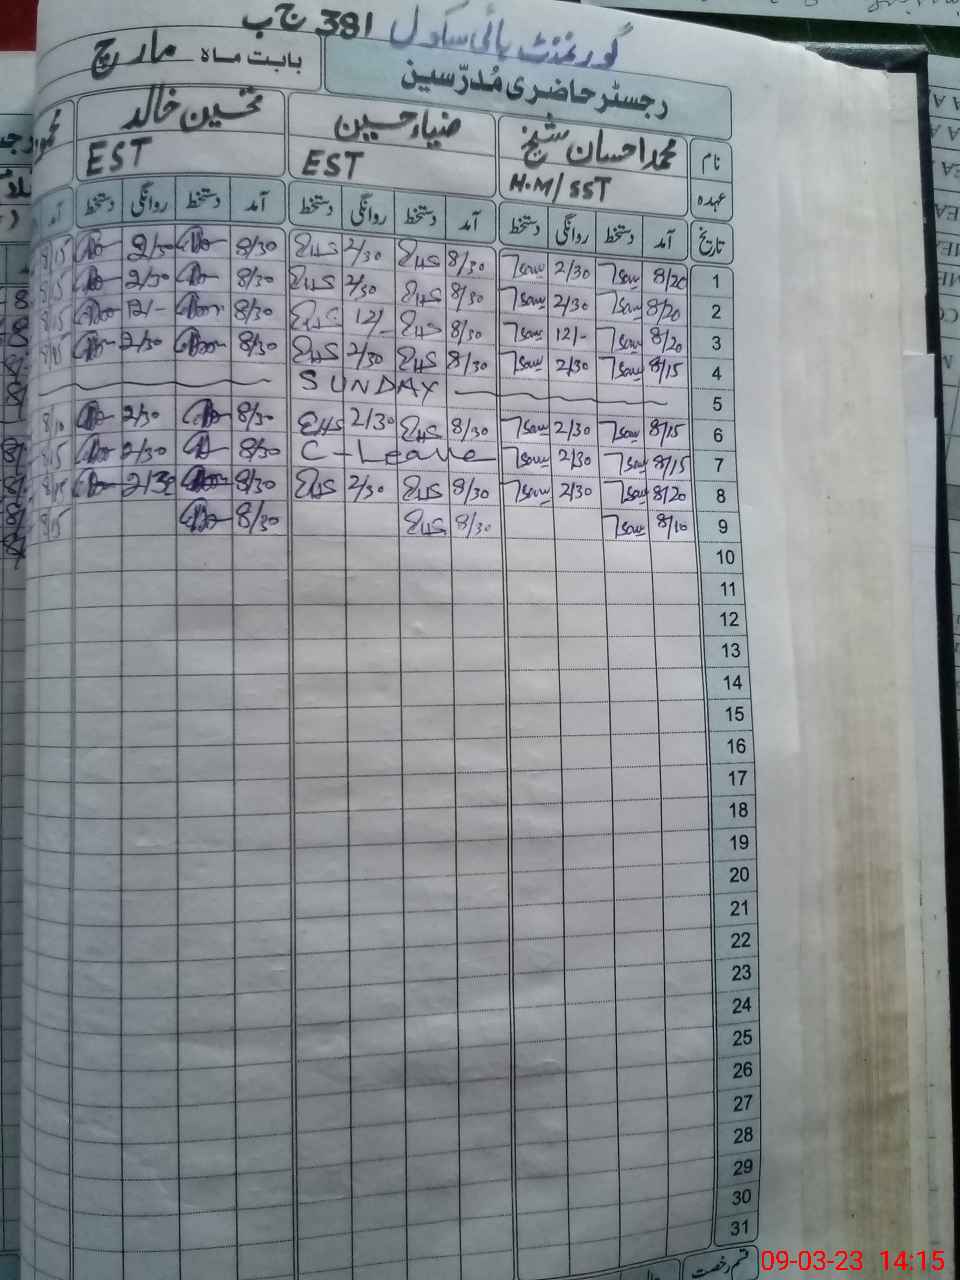 گورنمنٹ ہائی سکول 381 ج ب
رجسٹر حاضری مُدرّسین بابت ماہ مارچ
نام محمد احسان شیخ ضیاء حسین تحسین خالد
عہدہ H.M/SST EST EST
تاریخ آمد دستخط روانگی دستخط آمد دستخط روانگی دستخط آمد دستخط روانگی دستخط آمد
1 8/20 2/30 8/30 2/30 8/30 2/30 8/15
2 8/20 2/30 8/30 2/30 8/30 2/30 8/15
3 8/20 12/- 8/30 12/- 8/30 12/- 8/15
4 8/15 2/30 8/30 2/30 8/30 2/30 8/15
5 SUNDAY
6 8/15 2/30 8/30 2/30 8/30 2/30 8/10
7 8/15 2/30 C-Leave 8/30 2/30 8/15
8 8/20 2/30 8/30 2/30 8/30 2/30 8/15
9 8/10 8/30 8/30 8/15
10
11
12
13
14
15
16
17
18
19
20
21
22
23
24
25
26
27
28
29
30
31
قسم رخصت
09-03-23 14:15